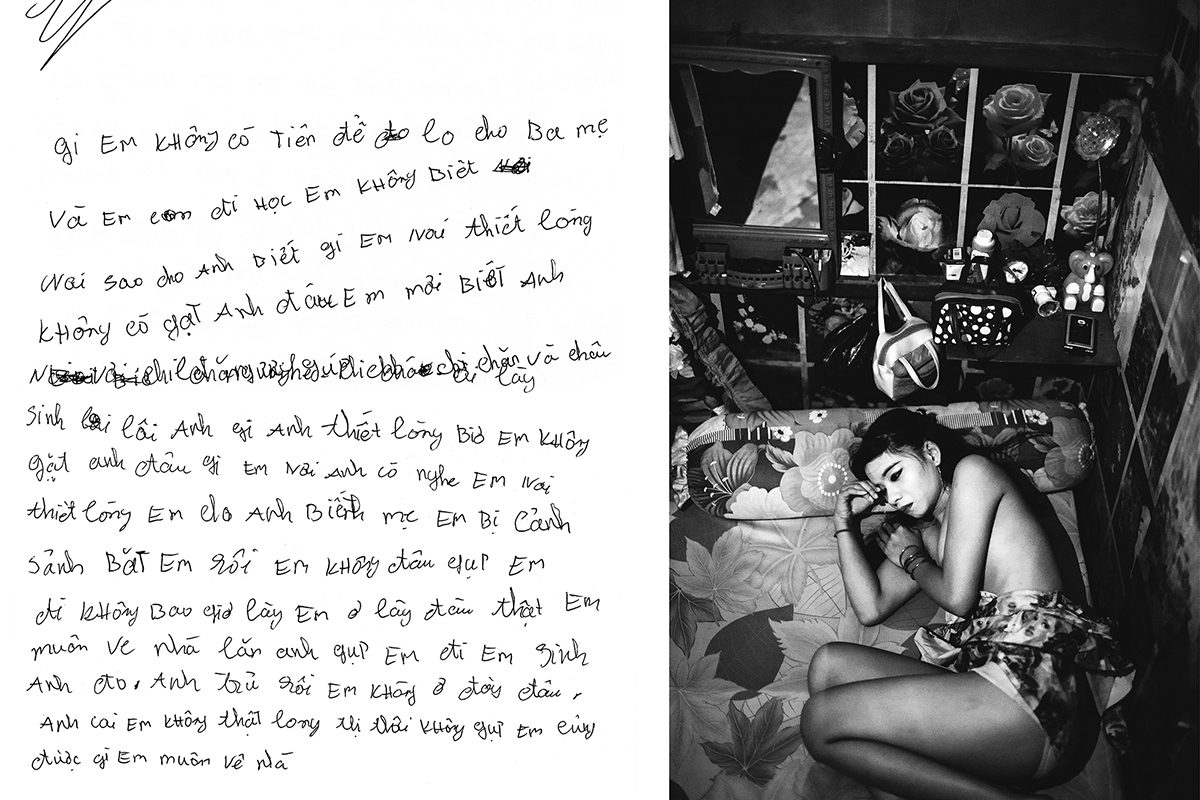 gì Em KHông có Tiền để lo cho Ba mẹ
Và Em còn đi Học Em KHông Biết
Nói sao cho Anh Biết gì Em Nói thiết lòng
KHông có gạt Anh đâu Em mới Biết Anh
và châu
Sinh lôi Anh gì Anh thiết lòng Em KHông
gặt anh đâu gì Em Nói Anh có nghe Em Nói
thiết lòng Em cho Anh Biết mẹ Em Bị Cảnh
Sảnh BắT Em rồi Em KHông đâu gúp Em
đi KHông Bao giờ lày Em ở lày đâu thật Em
muôn về nhà lăn anh gúp Em đi Em Sinh
Anh đo. Anh trủ rồi Em KHông ở đây đâu.
Anh coi Em KHông thật long thị thôi KHông gúp Em củng
được gì Em muôn về nhà